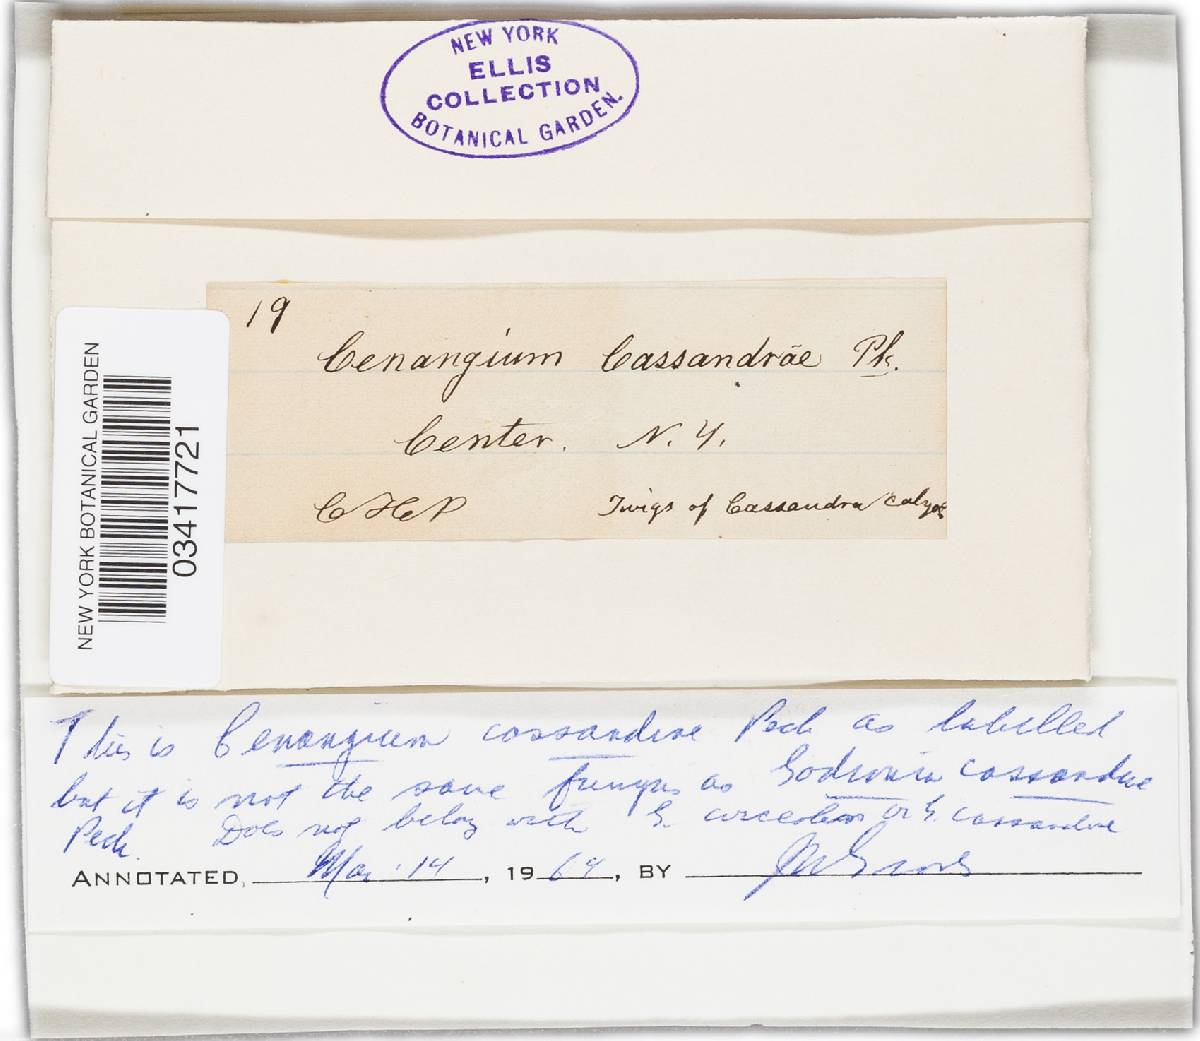 NEW YORK
ELLIS
COLLECTION
BOTANICAL GARDEN.
19
Cenangium Cassandrae Pk.
Center. N. Y.
CHP Twigs of Cassandra calyc
NEW YORK BOTANICAL GARDEN
03417721
This is Cenangium cassandrae Peck as labelled
but it is not the same fungus as Godronia cassandrae
Peck. Does not belong with G. or G. cassandrae
ANNOTATED, Mar. 14, 1969, BY JWGroves